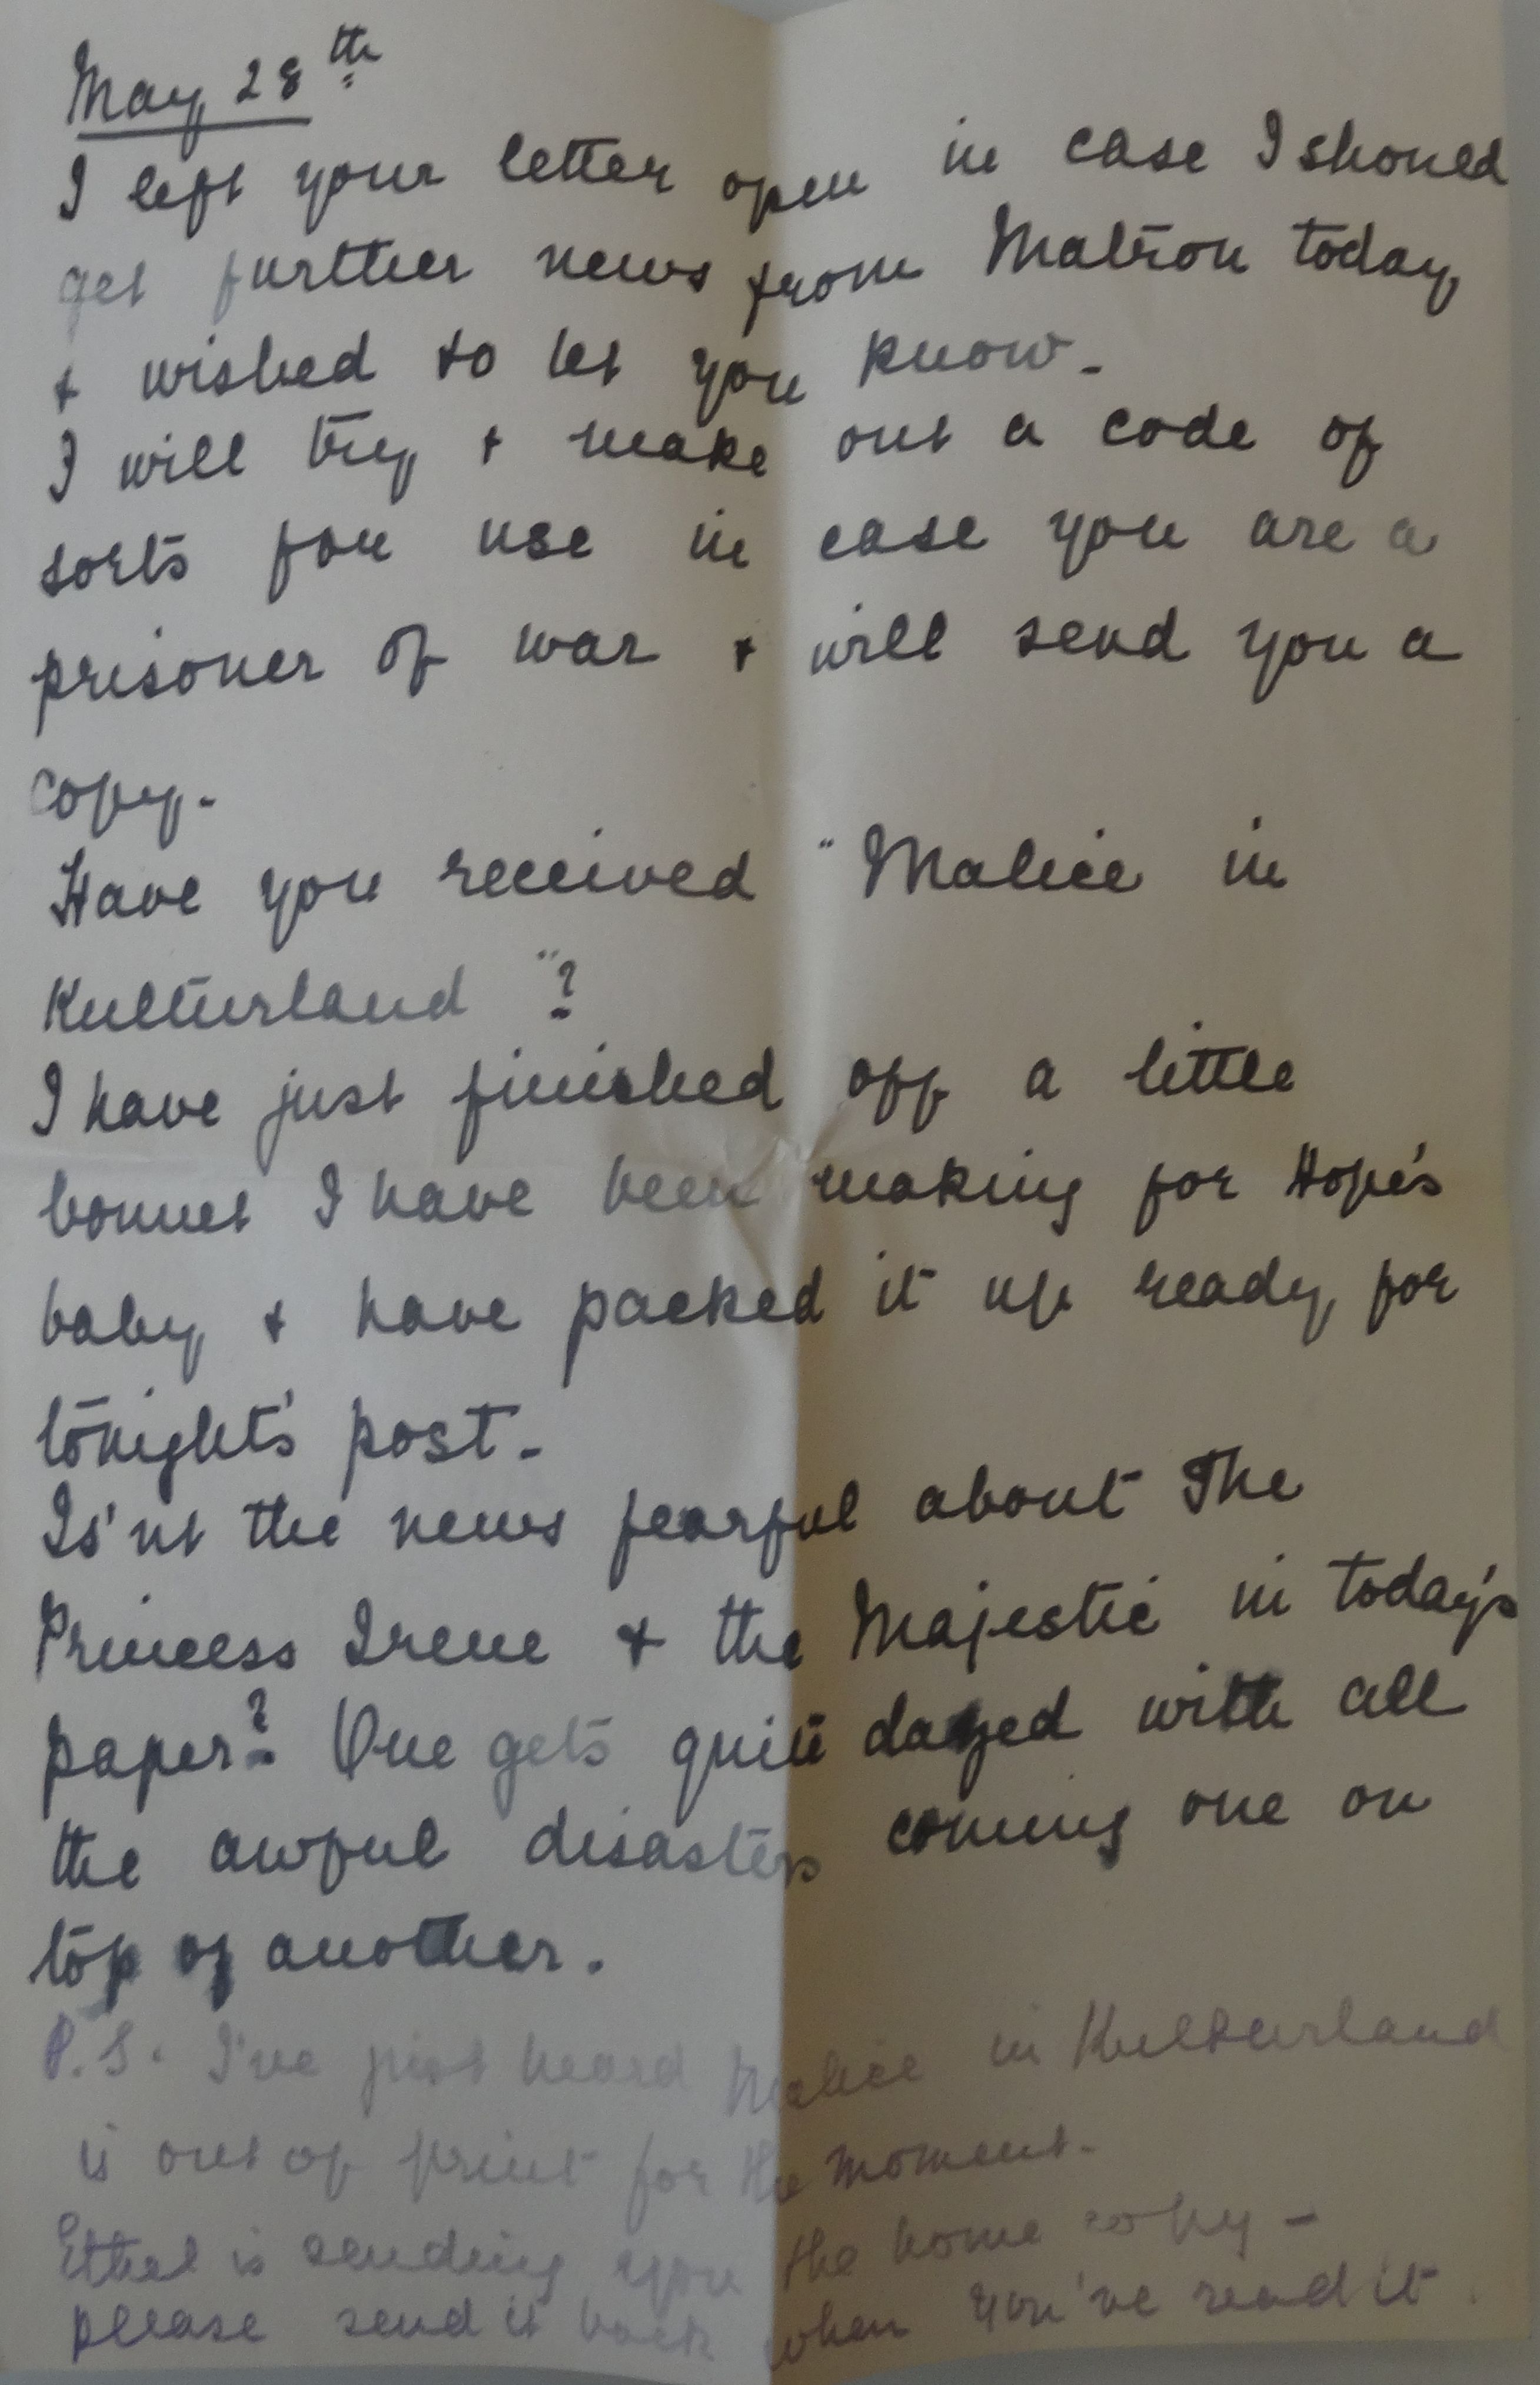 May 28th
I left your letter open in case I should
get further news from Matron today
& wished to let you know -
I will try & make out a code of
sorts for use in case you are a
prisoner of war & will send you a
copy -
Have you received "Malice in
Kulturland"?
I have just finished off a little
bonnet I have been making for Hope's
baby & have packed it up ready for
tonight's post -
Is'nt the news fearful about The
Princess Irene & the Majestic in today's
paper? One gets quite dazed with all
the awful disasters coming one on
top of another.
P.S. I've just heard Malice in Kulturland
is out of print for the moment -
Ethel is sending you the home copy -
please send it back when you've read it.